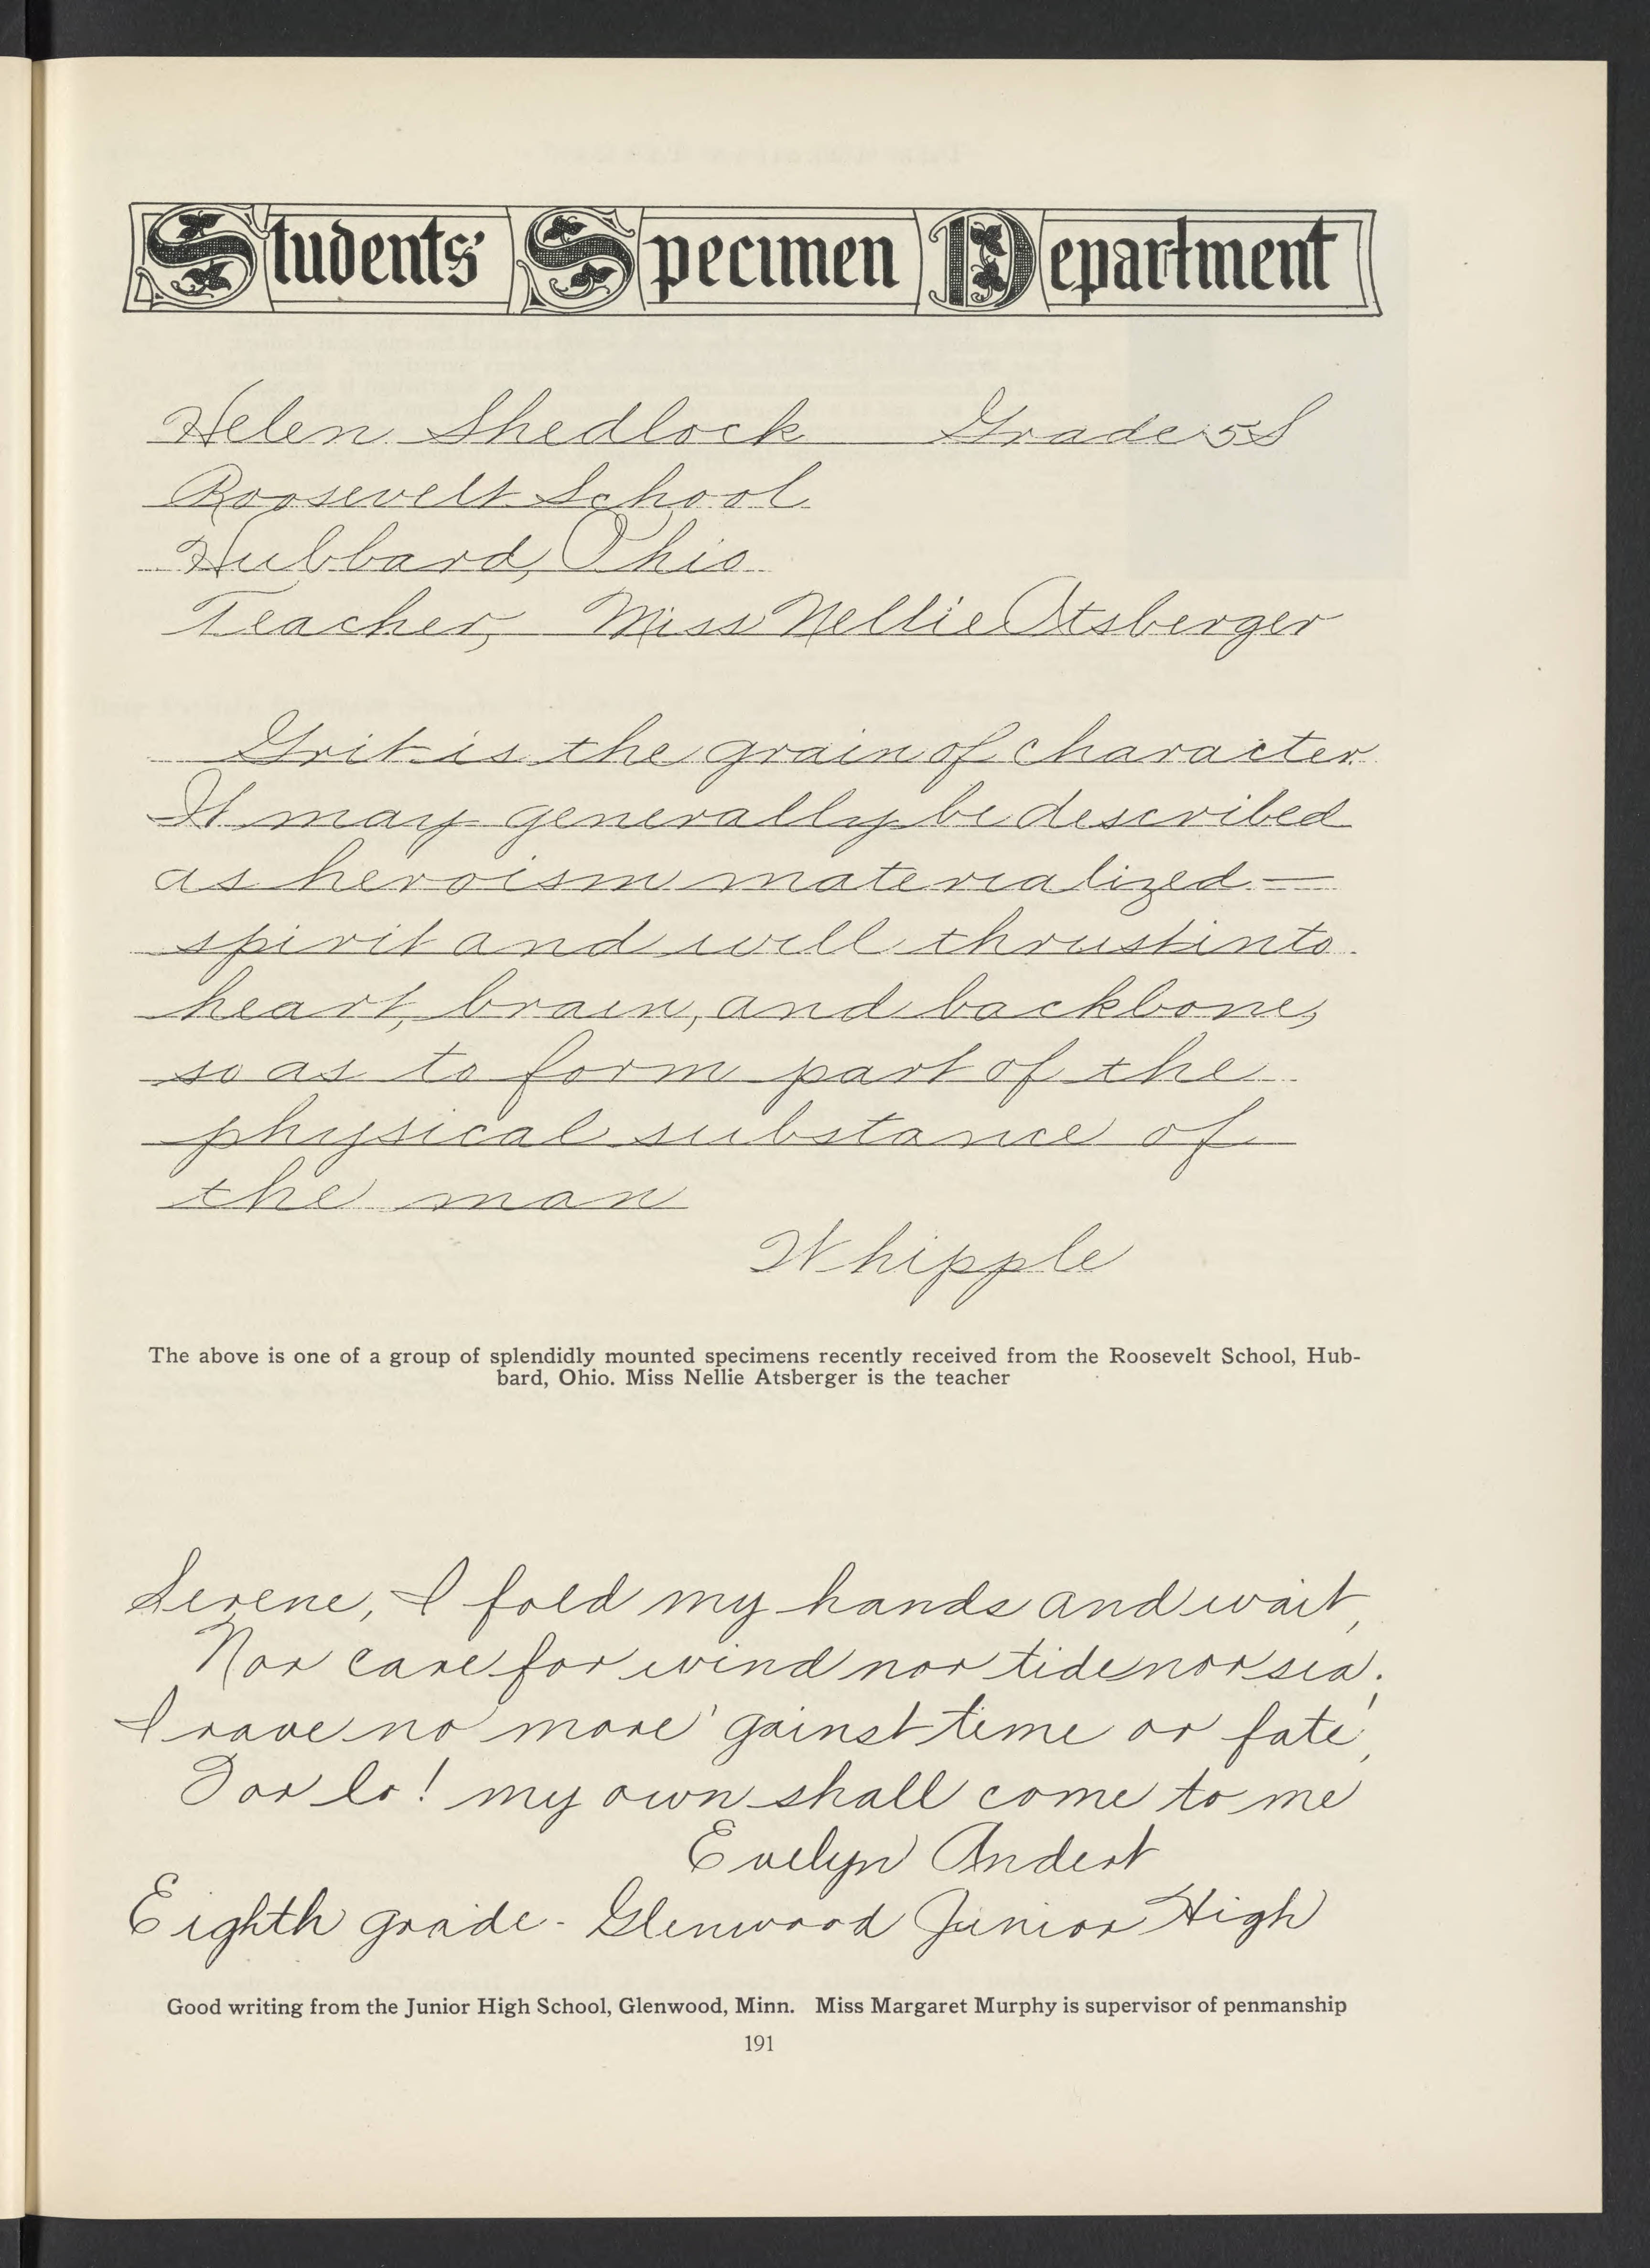 Students' Specimen Department
Helen Shedlock Grade 5S
Roosevelt School
Hubbard, Ohio
Teacher, Miss Nellie Atsberger
Grit is the grain of character.
It may generally be described
as heroism materialized —
spirit and will thrust into
heart, brain, and backbone,
so as to form part of the
physical substance of
the man
Whipple
The above is one of a group of splendidly mounted specimens recently received from the Roosevelt School, Hub-
bard, Ohio. Miss Nellie Atsberger is the teacher
Serene, I fold my hands and wait,
Nor care for wind nor tide nor sea;
I rave no more 'gainst time or fate,
For lo! my own shall come to me
Evelyn Andert
Eighth grade - Glenwood Junior High
Good writing from the Junior High School, Glenwood, Minn. Miss Margaret Murphy is supervisor of penmanship
191